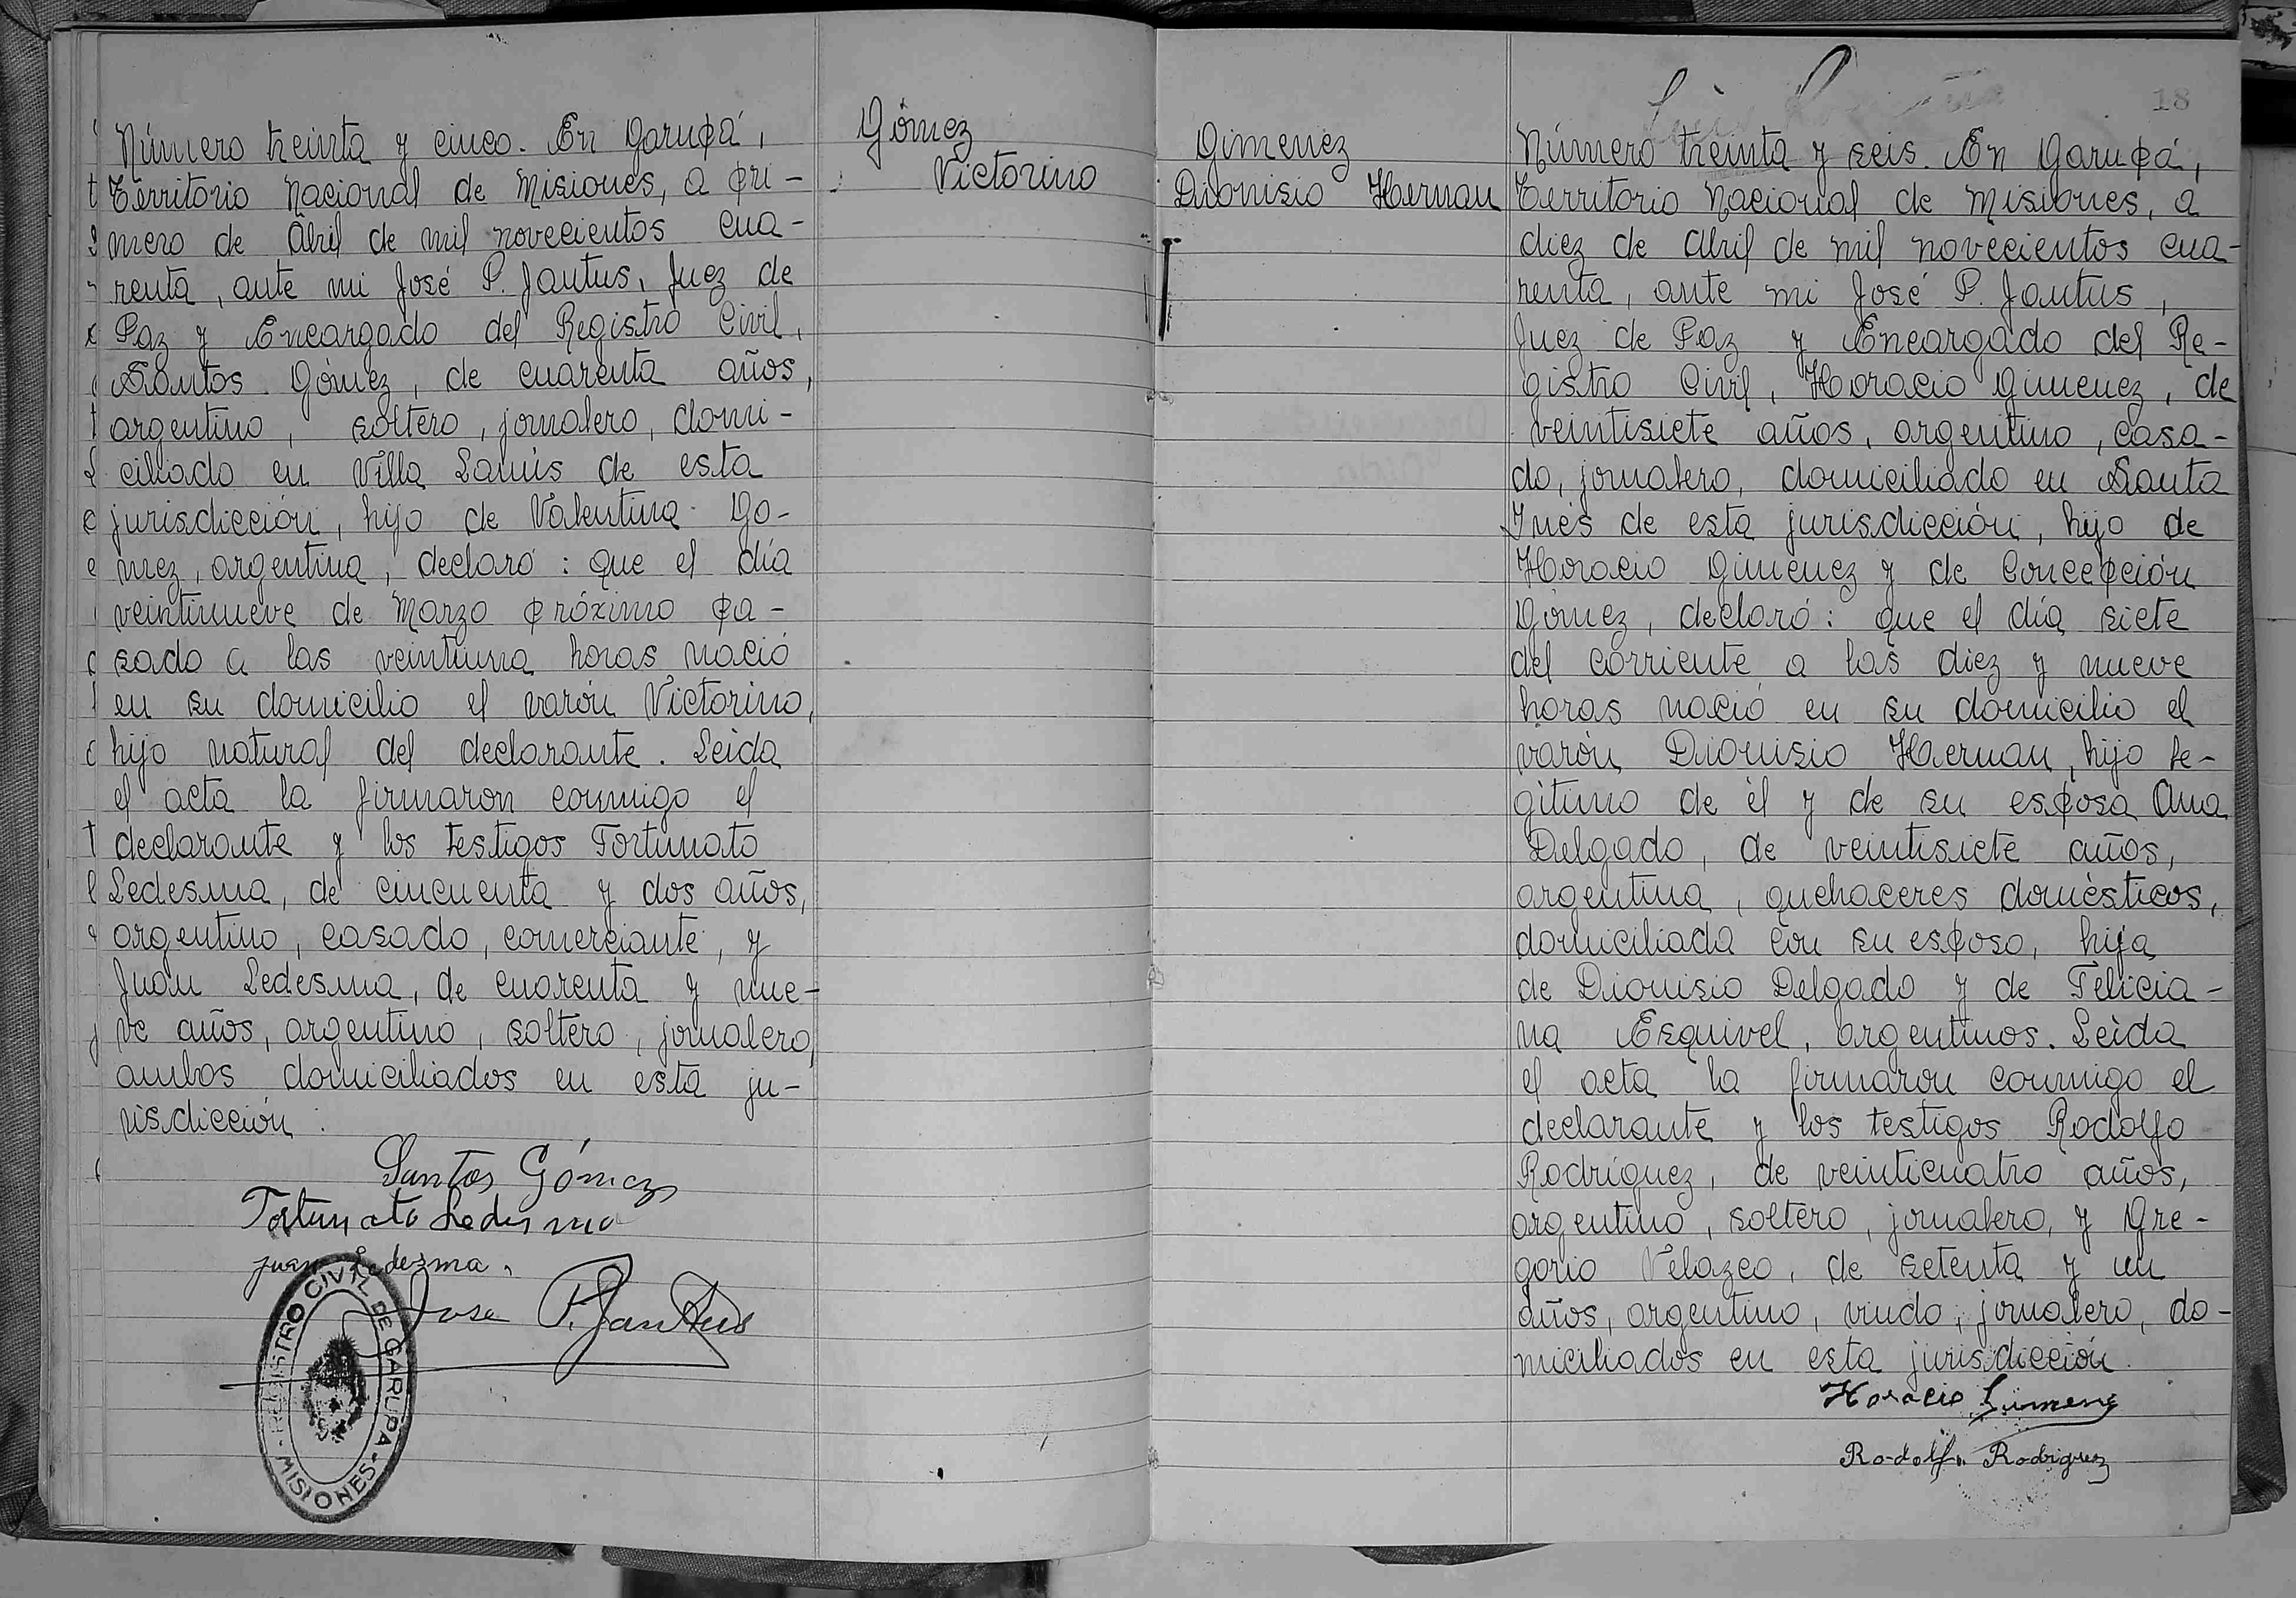 Número treinta y cinco. En Garupá,
Territorio Nacional de Misiones, a pri-
mero de Abril de mil novecientos cua-
renta, ante mi José P. Jantus, Juez de
Paz y Encargado del Registro Civil,
Santos Gómez, de cuarenta años,
argentino, soltero, jornalero, domi-
ciliado en Villa Lanús de esta
jurisdicción, hijo de Valentina Go-
mez, argentina, declaró: que el día
veintinueve de Marzo próximo pa-
sado a las veintiuna horas nació
en su domicilio el varón Victorino,
hijo natural del declarante. Leida
el acta la firmaron conmigo el
declarante y los testigos Fortunato
Ledesma, de cincuenta y dos años,
argentino, casado, comerciante, y
Juan Ledesma, de cuarenta y nue-
ve años, argentino, soltero, jornalero,
ambos domiciliados en esta ju-
risdicción.
Santos Gómez
Fortunato Ledesma
juan Ledezma.
Jose P. Jantus
REGISTRO CIVIL DE GARUPA
-MISIONES-
Gómez
Victorino
Gimenez
Dionisio Hernan
18
Número treinta y seis. En Garupá,
Territorio Nacional de Misiones, a
diez de Abril de mil novecientos cua-
renta, ante mi José P. Jantus,
Juez de Paz y Encargado del Re-
gistro Civil, Horacio Gimenez, de
veintisiete años, argentino, casa-
do, jornalero, domiciliado en Santa
Inés de esta jurisdicción, hijo de
Horacio Gimenez y de Concepción
Gómez, declaró: que el día siete
del corriente a las diez y nueve
horas nació en su domicilio el
varón Dionisio Hernan, hijo le-
gitimo de él y de su esposa Ana
Delgado, de veintisiete años,
argentina, quehaceres domésticos,
domiciliada con su esposo, hija
de Dionisio Delgado y de Felicia-
na Esquivel, argentinos. Leida
el acta la firmaron conmigo el
declarante y los testigos Rodolfo
Rodríguez, de veinticuatro años,
argentino, soltero, jornalero, y Gre-
gorio Velazco, de setenta y un
años, argentino, viudo, jornalero, do-
miciliados en esta jurisdicción.
Horacio Gimenez
Rodolfo Rodriguez